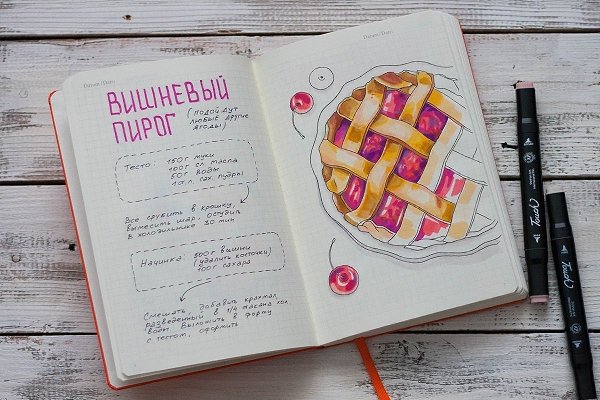 Datum / Date:
ВИШНЕВЫЙ
ПИРОГ
(ПОДОЙДУТ
ЛЮБЫЕ ДРУГИЕ
ЯГОДЫ)
Тесто: 150 г муки
100 г сл. масла
50 г воды
1 ст. л. сах. пудры
Все срубить в крошку,
вымесить шар, остудить
в холодильнике 30 мин
Начинка: 500 г вишни
(удалить косточки)
100 г сахара
Смешать, добавить крахмал,
разведенный в 1/4 стакана хол.
воды. Выложить в форму
с тестом, оформить
Datum / Date:
Touch
Touch